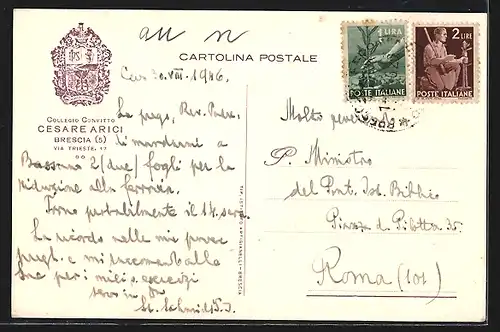 CARTOLINA POSTALE
1 LIRE
POSTE ITALIANE
2 LIRE
POSTE ITALIANE
COLLEGIO CONVITTO
CESARE ARICI
BRESCIA (5)
VIA TRIESTE, 17
30. VIII. 1946.
La prego, Rev. Padre,
di mandarmi a
Bassano 2 (due) fogli per la
riduzione alla ferrovia.
Torno probabilmente il 14 sera.
La ricordo nelle mie povere
pregh. e mi raccomando alla
Sua per i miei s. esercizi
St. Schmidt S.J.
Molto rever.
P. Ministro
del Pont. Ist. Biblico
Piazza d. Pilotta 35
Roma (101)